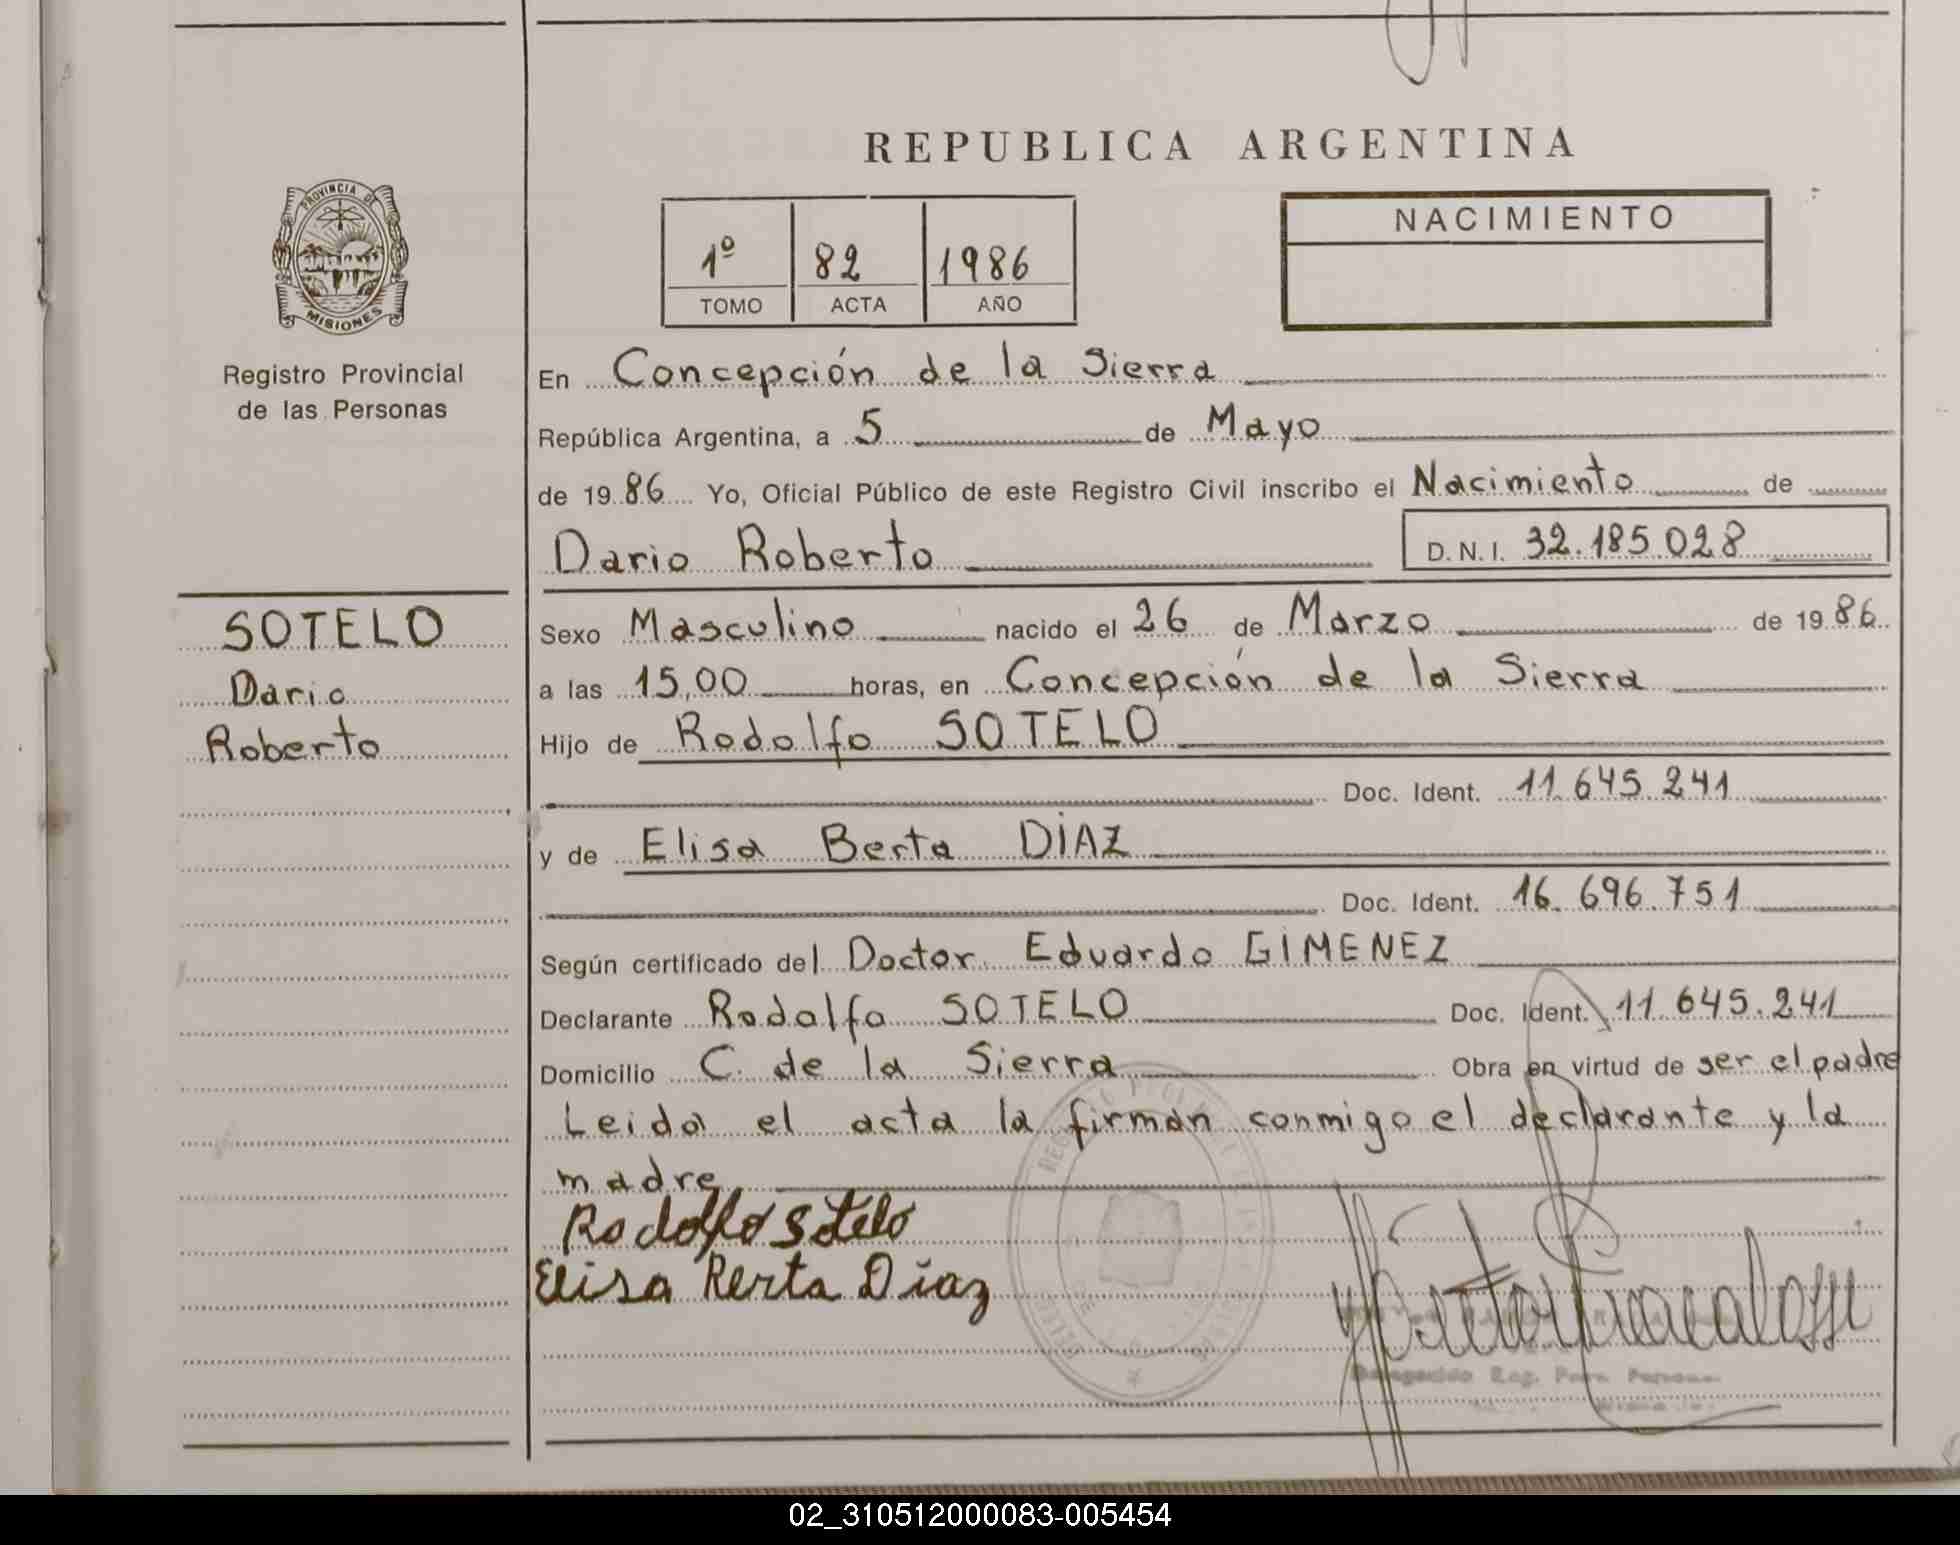 REPUBLICA ARGENTINA
PROVINCIA DE
MISIONES
Registro Provincial
de las Personas
1º 82 1986
TOMO ACTA AÑO
NACIMIENTO
En Concepción de la Sierra
República Argentina, a 5 de Mayo
de 1986 Yo, Oficial Público de este Registro Civil inscribo el Nacimiento de
Dario Roberto D.N.I. 32.185.028
SOTELO
Dario
Roberto
Sexo Masculino nacido el 26 de Marzo de 1986
a las 15,00 horas, en Concepción de la Sierra
Hijo de Rodolfo SOTELO
Doc. Ident. 11.645.241
y de Elisa Berta DíAZ
Doc. Ident. 16.696.751
Según certificado del Doctor Eduardo GIMENEZ
Declarante Rodolfo SOTELO Doc. Ident. 11.645.241
Domicilio C. de la Sierra Obra en virtud de ser el padre
Leida el acta la firman conmigo el declarante y la
madre
Rodolfo Sotelo
Elisa Berta Díaz
02_310512000083-005454